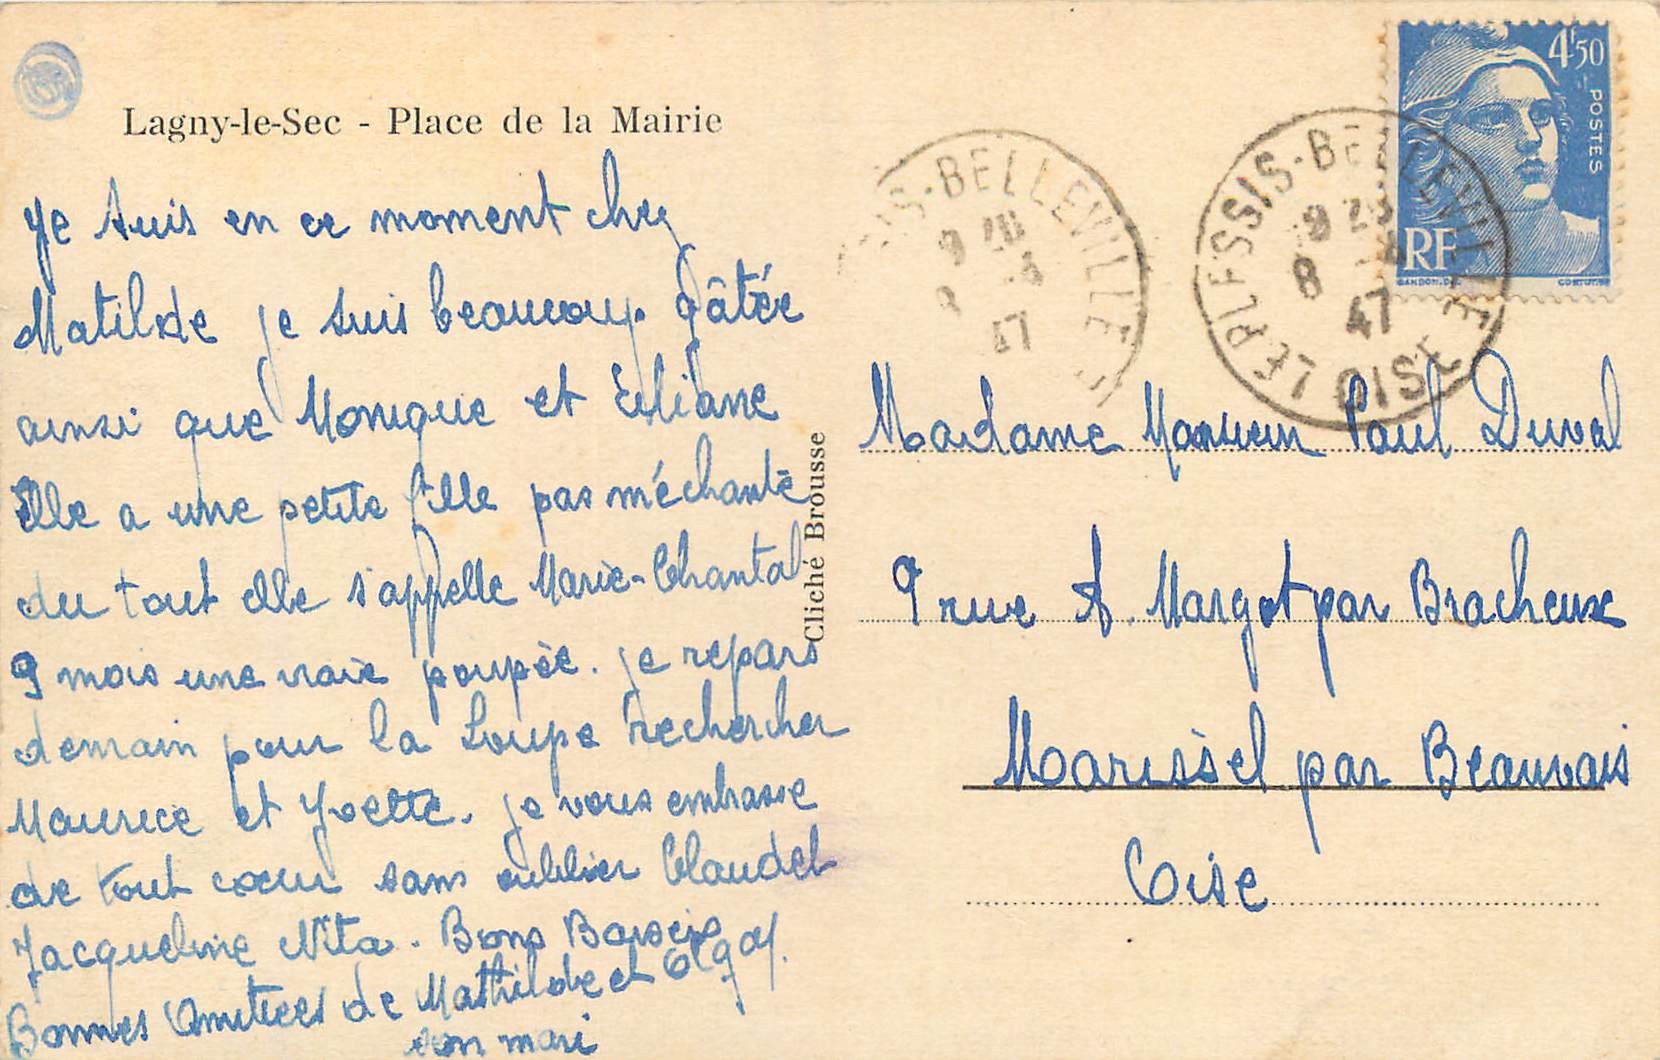 Lagny-le-Sec - Place de la Mairie
Je suis en ce moment chez
Matilde je suis beaucoup gâtée
ainsi que Monique et Eliane
Elle a une petite fille pas méchante
du tout elle s'appelle Marie-Chantal
9 mois une vraie poupée. je repars
demain pour la Loupe rechercher
Maurice et Yvette. je vous embrasse
de tout cœur sans oublier Claudet
Jacqueline Nita. Bons Baisers
Bonnes Amitiées de Mathilde et
son mari
Cliché Brousse
4F50
POSTES
RF
GANDON. DEL.
IS-BELLEVILLE
9 28
8 -4
47
LE PLESSIS-BELLEVILLE
9 28
8 -4
47
OISE
Madame Monsieur Paul Duval
9 rue A. Margot par Bracheux
Marissel par Beauvais
Oise